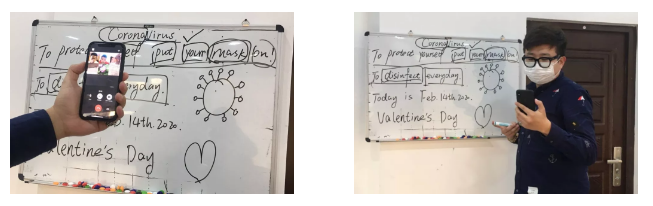 Coronavirus
To protect put your mask on!
To everyday.
Feb. 14th. 2020.
Valentine's Day
Coronavirus
To protect yourself put your mask on!
To disinfect everyday
Today is Feb. 14th. 2020.
Valentine's Day